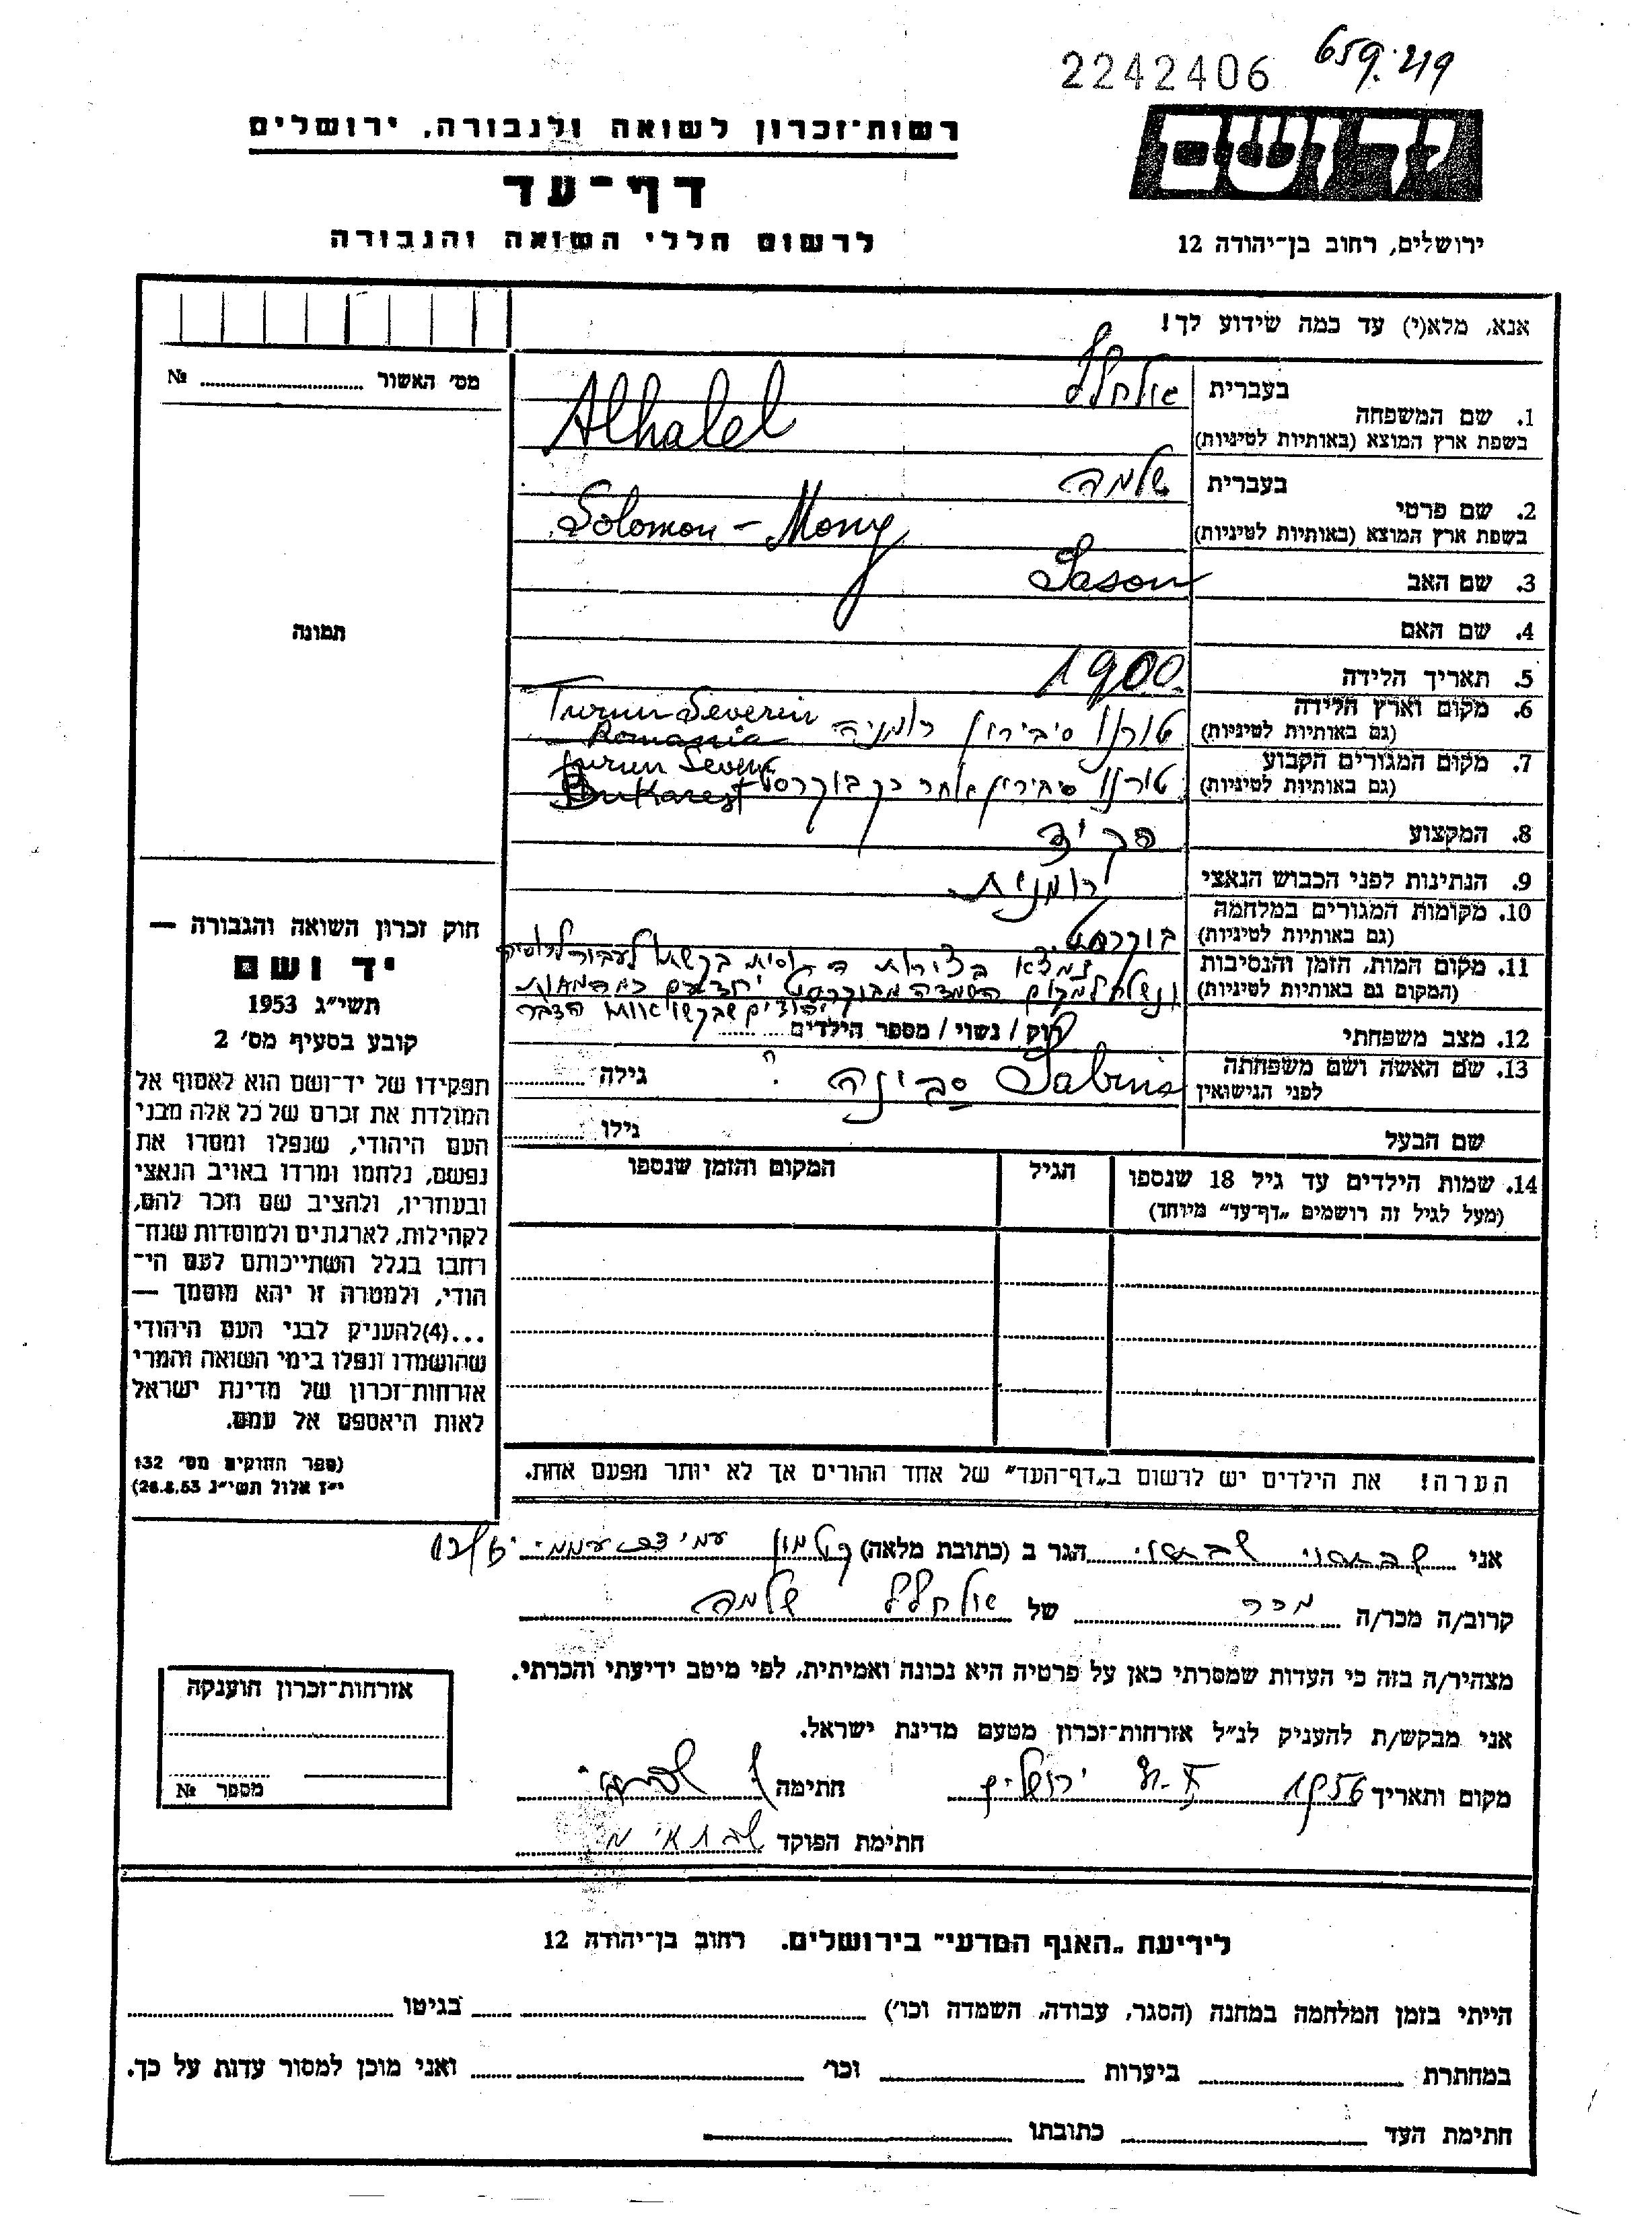 2242406 659.219
רשות־זכרון לשואה ולגבורה, ירושלים
יד ושם
דף־עד
לרשום חללי השואה והגבורה
ירושלים, רחוב בן־יהודה 12
אנא, מלא(י) עד כמה שידוע לך!
מס׳ האשור № ........
1. שם המשפחה בעברית אלחלל
בשפת ארץ המוצא (באותיות לטיניות) Alhalel
2. שם פרטי בעברית שלמה
בשפת ארץ המוצא (באותיות לטיניות) Solomon - Mony
3. שם האב Sason
4. שם האם
תמונה
5. תאריך הלידה 1900.
6. מקום וארץ הלידה טורנו סיבירין רומניה Turnu Severin
(גם באותיות לטיניות) Romania
7. מקום המגורים הקבוע טורנו סיבירין אחר כך בוקרסט Turnu Severin
(גם באותיות לטיניות) Bukarest
8. המקצוע
9. הנתינות לפני הכבוש הנאצי רומנית
10. מקומות המגורים במלחמה
(גם באותיות לטיניות) בוקרסט
11. מקום המות, הזמן והנסיבות נמצא בצירות הרוסית בקשתו לעבור לרוסיה
(המקום גם באותיות לטיניות) ונשלח למקום השמדה מבוקרסט יחד עם כמה מאות
יהודים שבקשו אותו הדבר
12. מצב משפחתי רוק / נשוי / מספר הילדים ........
13. שם האשה ושם משפחתה Sabina סבינה ? גילה ........
לפני הנישואין
שם הבעל גילו ........
14. שמות הילדים עד גיל 18 שנספו הגיל המקום והזמן שנספו
(מעל לגיל זה רושמים „דף־עד״ מיוחד)
חוק זכרון השואה והגבורה —
יד ושם
תשי״ג 1953
קובע בסעיף מס׳ 2
תפקידו של יד־ושם הוא לאסוף אל
המולדת את זכרם של כל אלה מבני
העם היהודי, שנפלו ומסרו את
נפשם, נלחמו ומרדו באויב הנאצי
ובעוזריו, ולהציב שם וזכר להם,
לקהילות, לארגונים ולמוסדות שנח־
רחבו בגלל השתייכותם לעם הי־
הודי, ולמטרה זו יהא מוסמך —
...(4)להעניק לבני העם היהודי
שהושמדו ונפלו בימי השואה והמרי
אזרחות־זכרון של מדינת ישראל
לאות היאספם אל עמם.
(ספר החוקים מס׳ 132
י״ז אלול תשי״ג 28.8.53)
הערה! את הילדים יש לרשום ב„דף־העד״ של אחד ההורים אך לא יותר מפעם אחת.
אני שבתאי הגר ב (כתובת מלאה) קטמון
קרוב/ה מכר/ה מכר של אלחלל שלמה
מצהיר/ה בזה כי העדות שמסרתי כאן על פרטיה היא נכונה ואמיתית, לפי מיטב ידיעתי והכרתי.
אני מבקש/ת להעניק לנ״ל אזרחות־זכרון מטעם מדינת ישראל.
מקום ותאריך 1956 ירושלים חתימה
חתימת הפוקד שבתאי מ
אזרחות־זכרון הוענקה
מספר №
לידיעת „האגף המדעי״ בירושלים. רחוב בן־יהודה 12
הייתי בזמן המלחמה במחנה (הסגר, עבודה, השמדה וכו׳) ........ בגיטו ........
במחתרת ........ ביערות ........ וכו׳ ........ ואני מוכן למסור עדות על כך.
חתימת העד ........ כתובתו ........